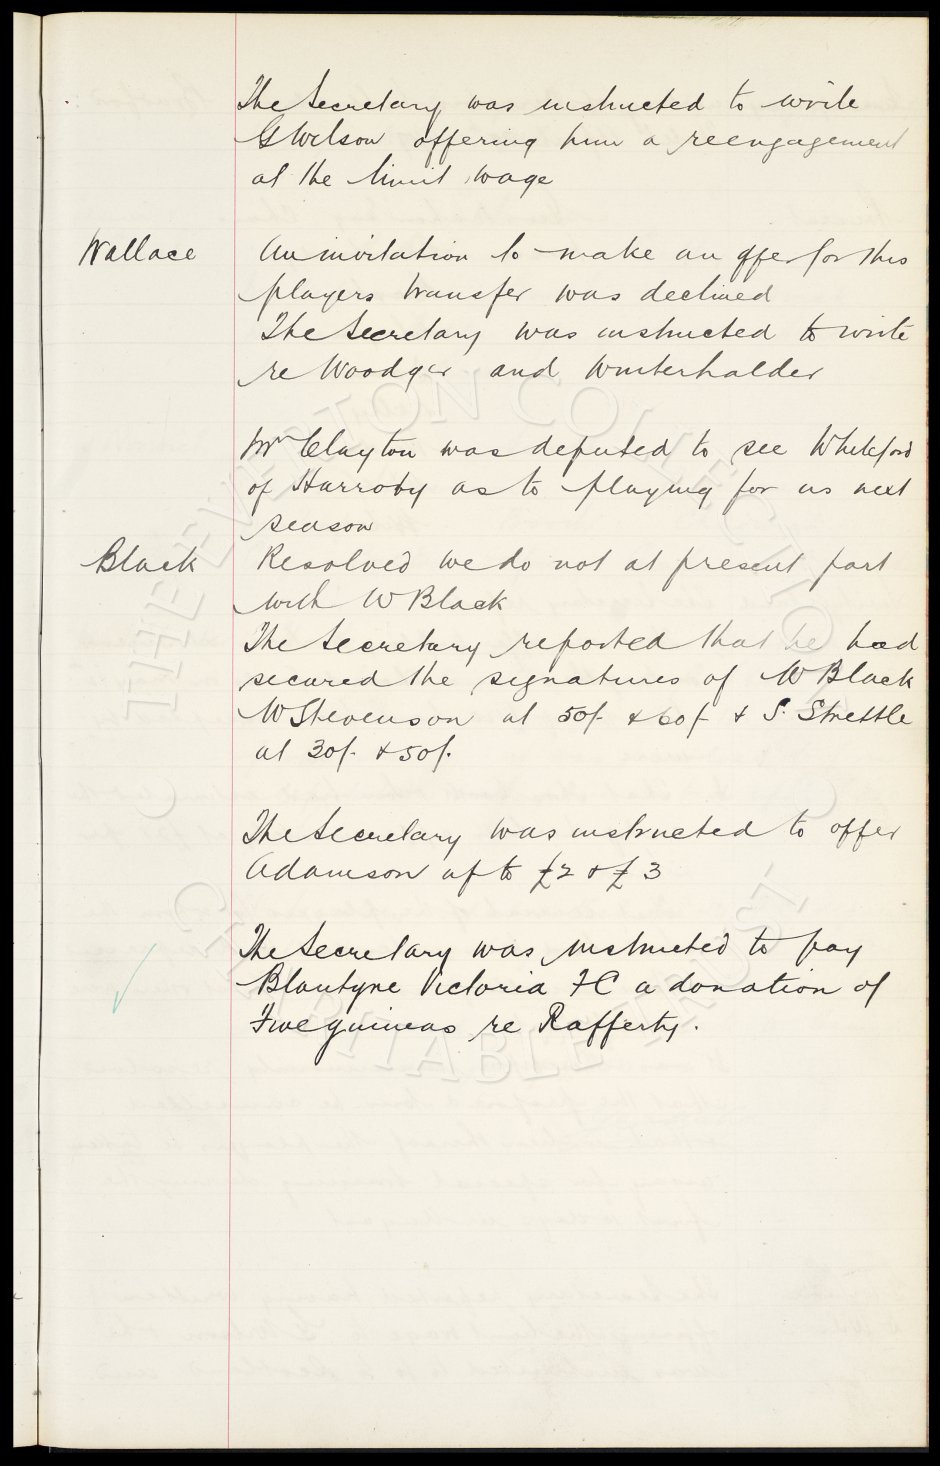 The Secretary was instructed to write
G Wilson offering him a reengagement
at the limit wage
Wallace An invitation to make an offer for this
players transfer was declined
The Secretary was instructed to write
re Woodger and Winterhalder
Mr Clayton was deputed to see Whiteford
of Harroby as to playing for us next
season
Black Resolved we do not at present part
with W Black
The Secretary reported that he had
secured the signatures of W Black
W Stevenson at 50/- & 60/- & S. Strettle
at 30/- & 50/-.
The Secretary was instructed to offer
Adamson up to £2 & £3
The Secretary was instructed to pay
Blantyre Victoria FC a donation of
Five guineas re Rafferty.
THE EVERTON COLLECTION
CHARITABLE TRUST